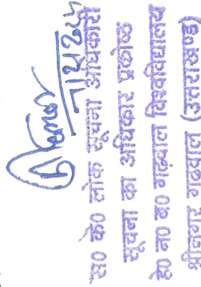 स० कु० लोक सूचना अधिकारी
सूचना का अधिकार प्रकोष्ठ
हे० न० ब० गढ़वाल विश्वविद्यालय
श्रीनगर गढ़वाल (उत्तराखण्ड)